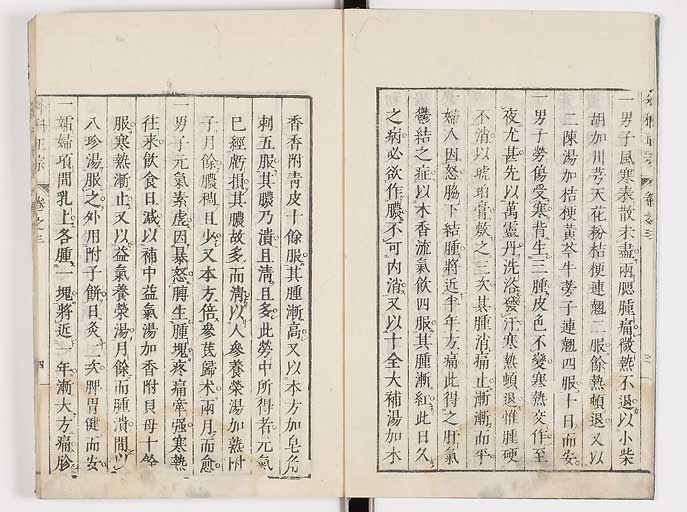 一男子風寒表散未盡兩腮腫痛微熱不退以小柴
胡加川芎天花粉桔梗連翹二服餘熱頓退又以
二陳湯加桔梗黃芩牛蒡子連翹四服十日而安
一男子勞傷受寒背生一腫皮色不變寒熱交作至
夜尤甚先以萬靈丹洗浴發汗寒熱頓退惟腫硬
不消以琥珀膏敷之三次其腫消痛止漸漸而平
一婦人因怒脇下結腫將近半年方痛此得之肝氣
鬱結之症以木香流氣飲四服其腫漸紅此日久
之病必欲作膿不可內消又以十全大補湯加木
香香附青皮十餘服其腫漸高又以本方加皂角
刺五服其膿乃潰且清且多此勞中所得者元氣
已經虧損其膿故多而清以人參養榮湯加熟附
子月餘膿稠且少又本方倍參芪歸术兩月而愈
一男子元氣素虛因暴怒膊生腫塊疼痛牽强寒熱
往來飲食日減以補中益氣湯加香附貝母十餘
服寒熱漸止又以益氣養榮湯月餘而腫潰間以
八珍湯服之外用附子餅日灸一次脾胃健而安
一孀婦項間乳上各腫一塊將近一年漸大方痛診
外科正宗 卷之三 四